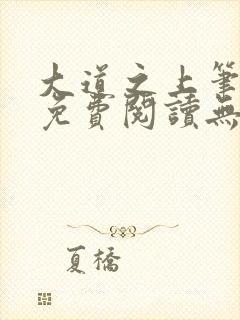 大道之上筆
免費閱讀無
夏橋